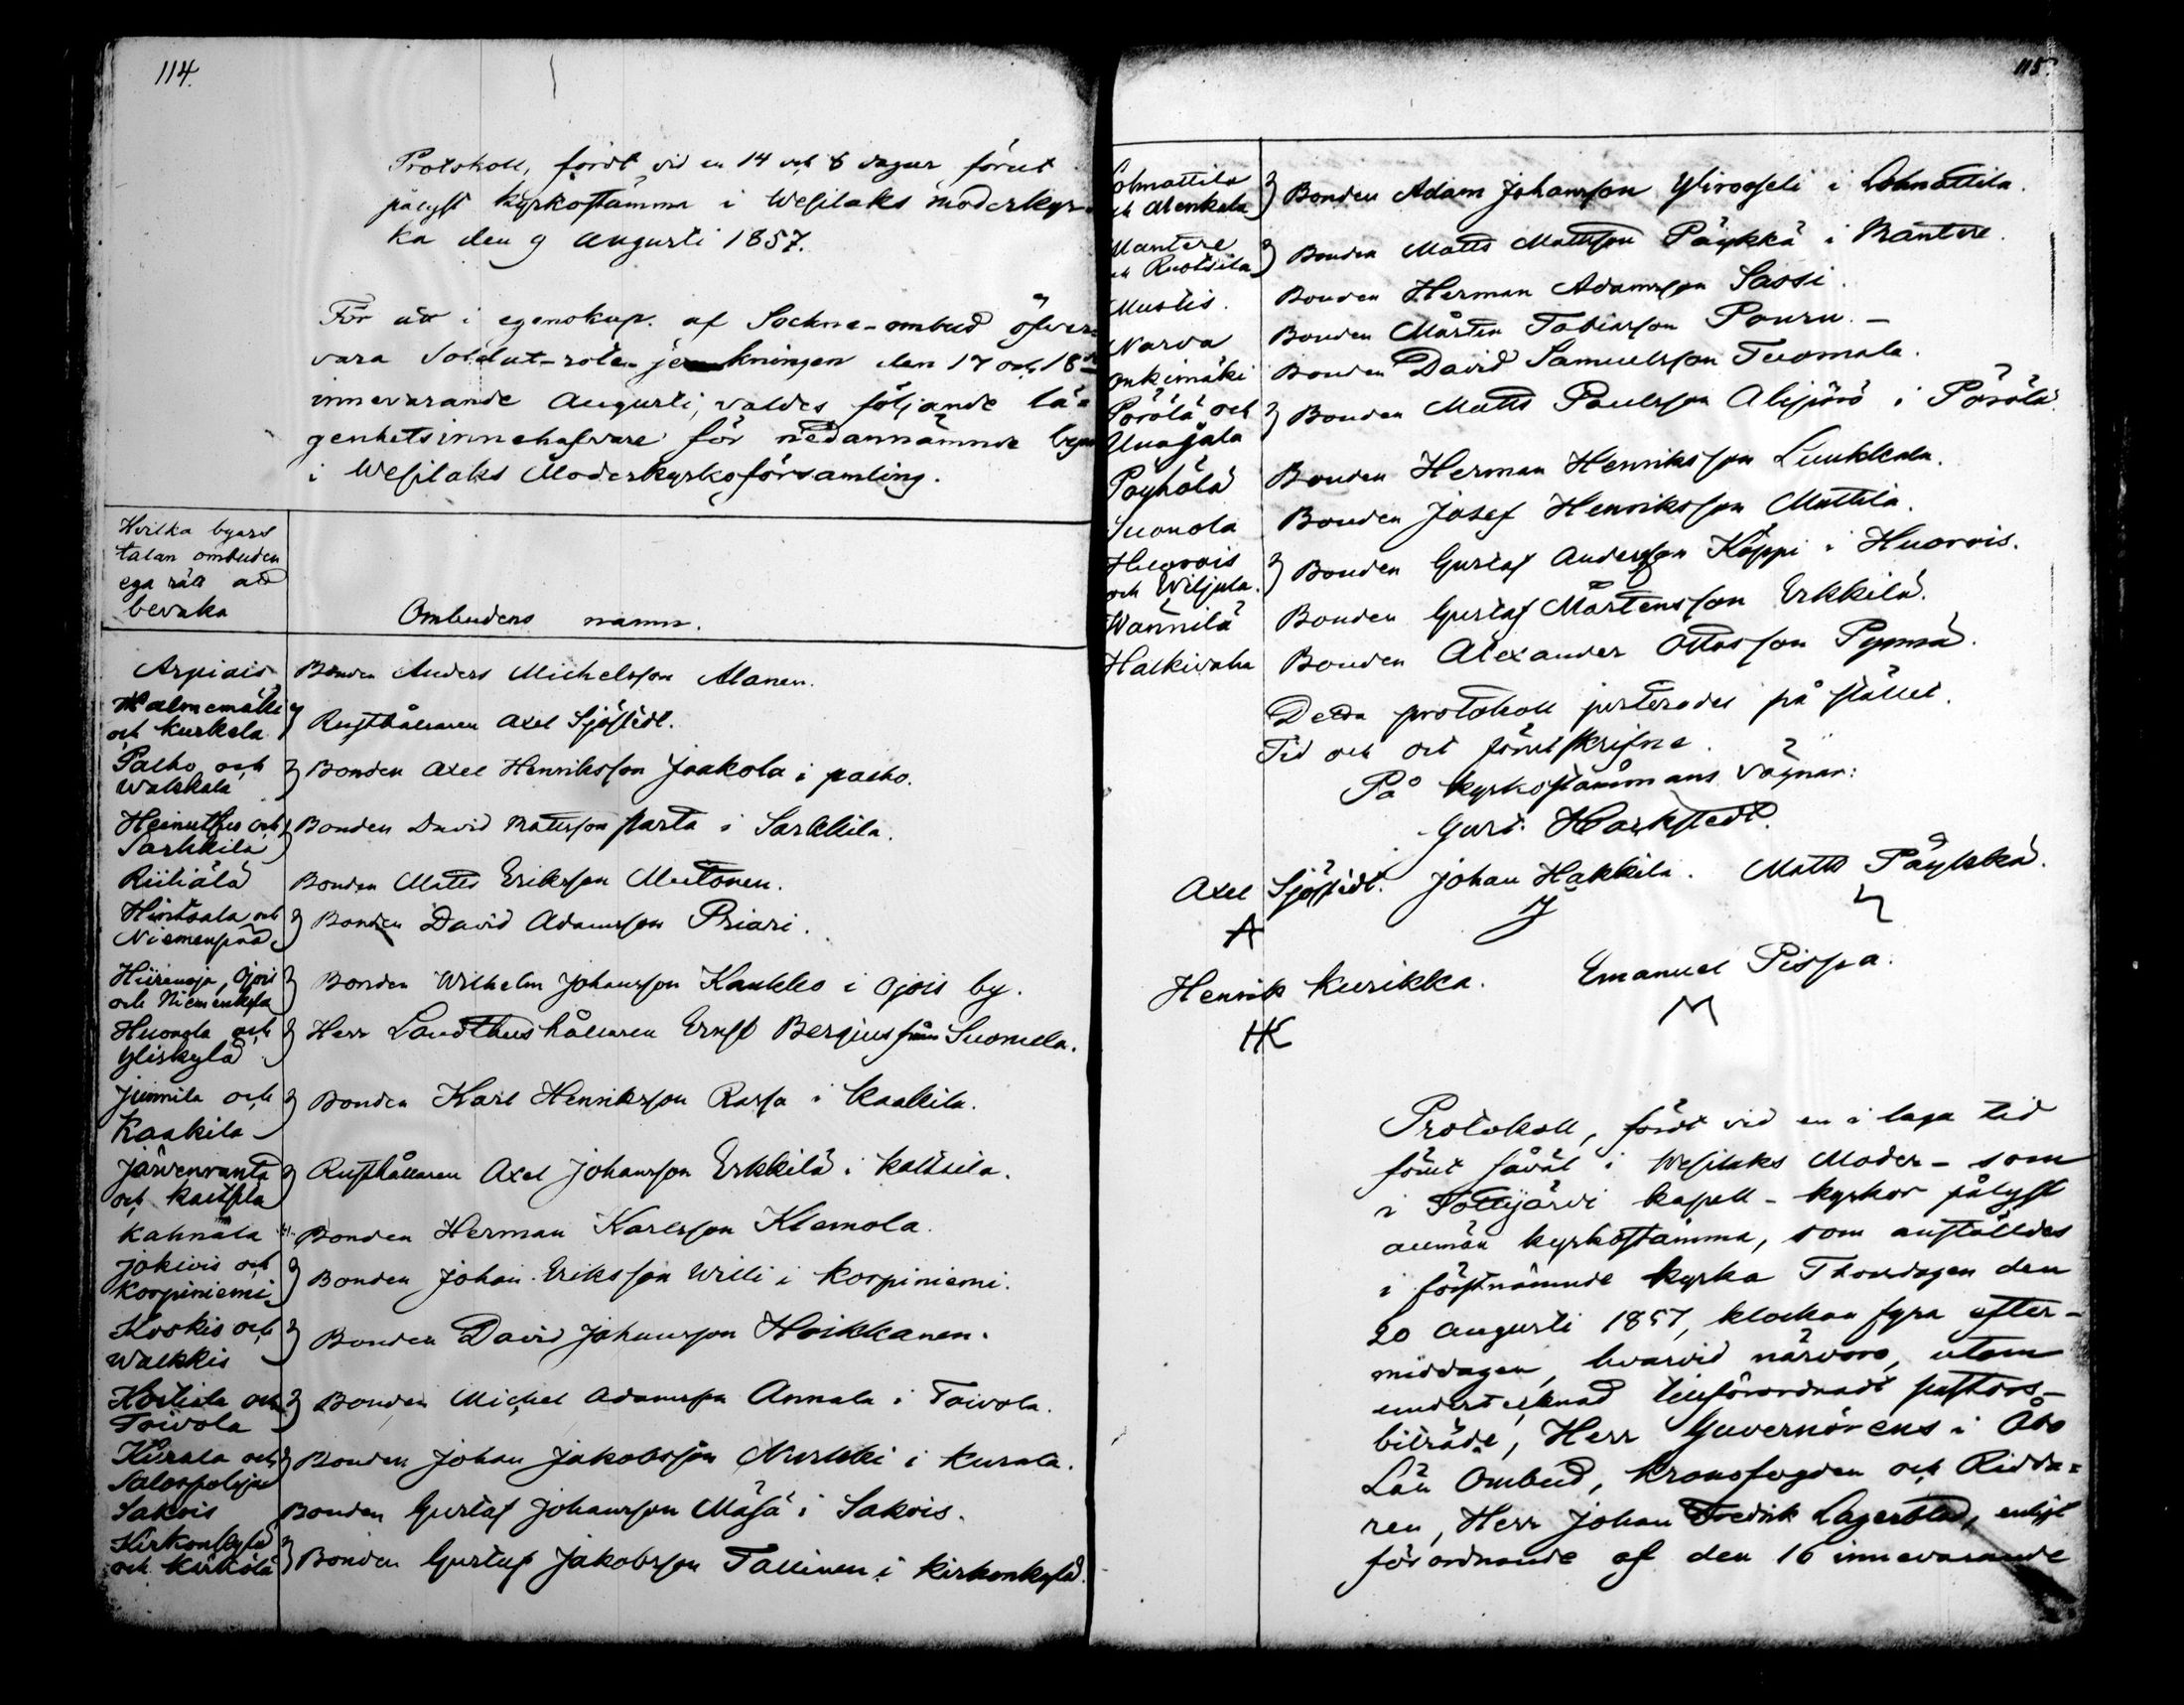 114.
Protokoll, fördt vid en 14 och 8 dagar förut
pålyst kyrkostämma i Wesilaks moderkyr-
ka den 9 Augusti 1857.
För att i egenskap af Sockne-ombud öfver-
vara Soldat-rote jemkningen den 17 och 18de
innevarande Augusti, valdes följande lä-
genhetsinnehafvare för nedannämnde byar
i Wesilaks Moderkyrkoförsamling.
Hvilka byars
talan ombuden
ega rätt att
bevaka
Ombudens namn.
Arpiais Bonden Anders Michelsson Alanen.
Palmemäki
och Kurkela } Rusthållaren Axel Sjöstedt.
Palho och
Walkkala } Bonden Axel Henriksson Jaakola i palho.
Heinuthu och
Sarkkila } Bonden David Mattsson parta i Sarkkila.
Riiliälä Bonden Matts Eriksson Mutonen.
Hintsala och
Niemenpää } Bonden David Adamsson Priari.
Hiirenoja, Ojois
och Niemenkylä } Bonden Wilhelm Johansson Kaukko i Ojois by.
Huonola och
Yliskylä } Herr Landthushållaren Ernst Bergius från Suomela.
Junnila och
Kaakila } Bonden Karl Henriksson Rassa i Kaakila.
Järvenranta
och Kaltsila } Rusthållaren Axel Johansson Erkkilä i Kaltsila.
Kahnala Bonden Herman Karlsson Klemola.
Jokiois och
Korpiniemi } Bonden Johan Eriksson Willi i Korpiniemi.
Koskis och
Walkkis } Bonden David Johansson Hoikkanen.
Kostiala och
Toivola } Bonden Michel Adamsson Annala i Toivola.
Kurala och
Salospohja } Bonden Johan Jakobsson Nurkki i Kurala.
Sakois Bonden Gustaf Johansson Mäsä i Sakois.
Kirkonkylä
och Kirkola } Bonden Gustaf Jakobsson Tallinen i Kirkonkylä.
115.
Lohnattila
och Menkala } Bonden Adam Johansson Ylirosseli i Lohnattila.
Mantere
och Ruotsila } Bonden Matts Mattsson Päykkä i Mäntere.
Mustis. Bonden Herman Adamsson Sassi.
Narva Bonden Mårten Tobiasson Pouru. –
Onkimäki Bonden David Samuelsson Tuomala.
Pörölä och
Unajala } Bonden Matts Paulsson Alipörö i Pörölä.
Pöyhölä Bonden Herman Henriksson Luukkala.
Suonola Bonden Josef Henriksson Mattila.
Huovois
och Wiljula. } Bonden Gustaf Andersson Käppi i Huovois.
Wännilä Bonden Gustaf Mårtensson Erkkilä.
Halkivaha Bonden Alexander Ottosson Pynnä.
Detta protokoll justerades på stället.
Tid och ort förutskrifne.
På kyrkostämmans vägnar:
Gust. Harkstedt.
Axel Sjöstedt. Johan Hakkila. Matts Päykkä.
A
Henrik Kurikka. Emanuel Pispa.
HK M
Protokoll, fördt vid en i laga tid
förut såväl i Wesilaks Moder- som
i Tottijärvi kapell-kyrkor pålyst
allmän kyrkostämma, som anställdes
i förstnämnde kyrka Thorsdagen den
20 Augusti 1857, klockan fyra efter-
middagen, hvarvid närvoro, utom
undertecknad tillförordnadt pastors-
biträde, Herr Guvernörens i Åbo
Län Ombud, Kronofogden och Ridda-
ren, Herr Johan Fredrik Lagerblad, enligt
förordnande af den 16 innevarande